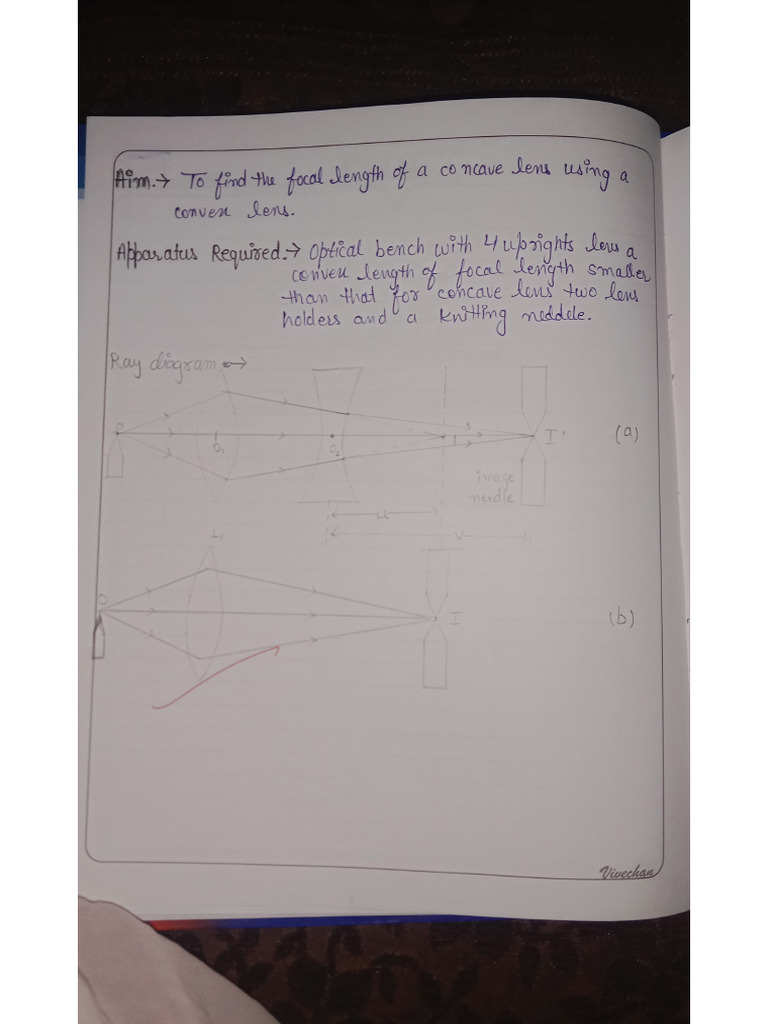 Aim.→ To find the focal length of a concave lens using a
convex lens.
Apparatus Required.→ Optical bench with 4 uprights lens a
convex length of focal length smaller
than that for concave lens two lens
holders and a knitting neddele.
Ray diagram →
O
O₁
O₂
I
I'
(a)
image
needle
u
v
L₁
O
I
(b)
Vivechan